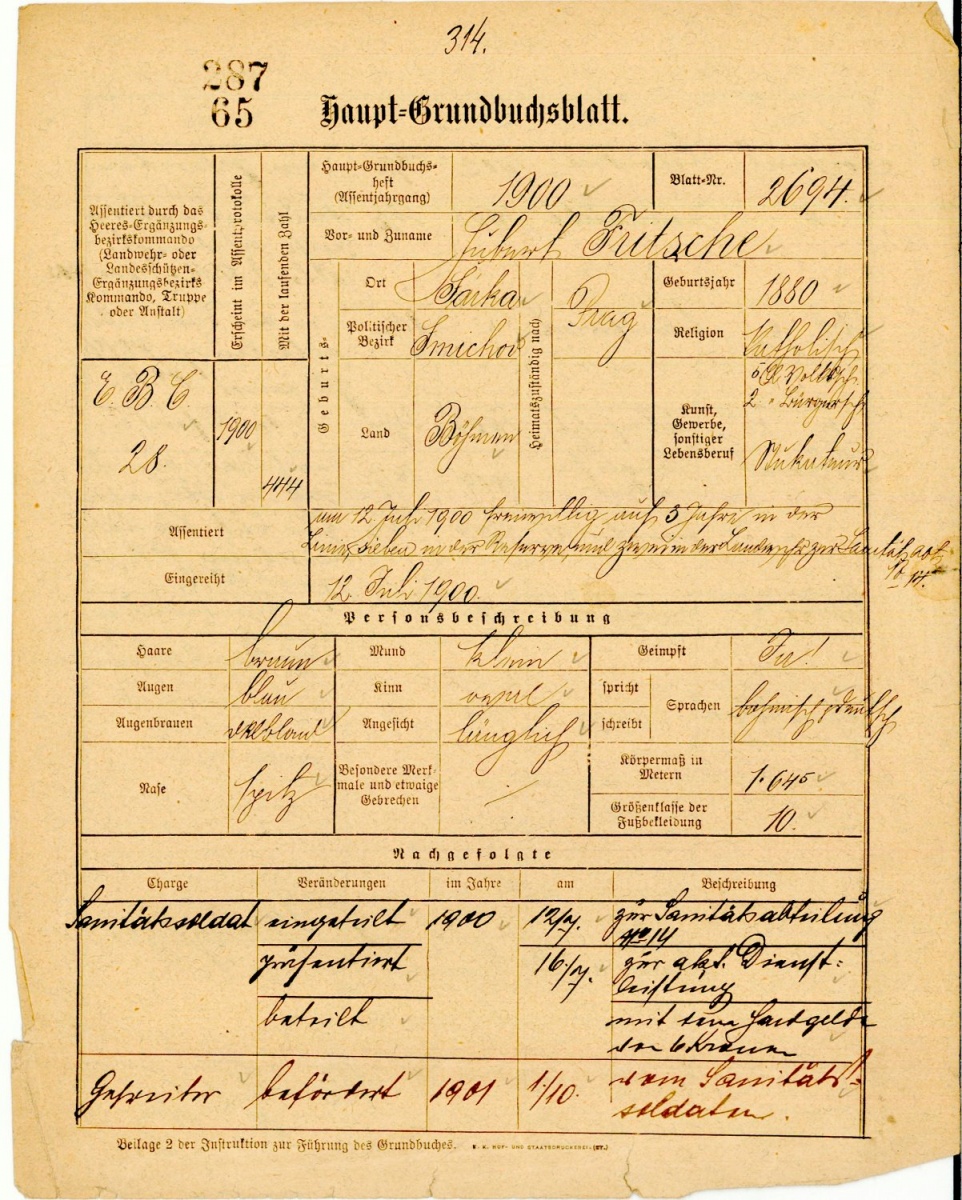 314.
287
65
Haupt-Grundbuchsblatt.
Assentiert durch das
Heeres-Ergänzungs-
bezirkskommando
(Landwehr- oder
Landesschützen-
Ergänzungsbezirks
Kommando, Truppe
oder Anstalt)
Erscheint im Assent.protokolle
Mit der laufenden Zahl
E. B. C.
28.
1900
444
Haupt-Grundbuchs-
heft
(Assentjahrgang)
1900
Blatt-Nr.
2694.
Vor- und Zuname
Hubert Fritsche
Geburts-
Ort
Šárka
Politischer
Bezirk
Smichov
Land
Böhmen
Heimatszuständig nach
Prag
Geburtsjahr
1880
Religion
Katholisch
Kunst,
Gewerbe,
sonstiger
Lebensberuf
5 Kl. Volkssch.
2 " Bürgersch.
Stukateur
Assentiert
am 12 Juli 1900 freiwillig auf 3 Jahre in der
Linie, sieben in der Reserve und zwei in der Landwehr zur Sanität abt.
No 14.
Eingereiht
12. Juli 1900.
Personsbeschreibung
Haare
braun
Mund
klein
Geimpft
Ja!
Augen
blau
Kinn
oval
spricht
schreibt
Sprachen
böhmisch, deutsch
Augenbrauen
Angesicht
länglich
Nase
spitz
Besondere Merk-
male und etwaige
Gebrechen
Körpermaß in
Metern
1.645
Größenklasse der
Fußbekleidung
10.
Nachgefolgte
Charge
Veränderungen
im Jahre
am
Beschreibung
Sanitätssoldat eingeteilt 1900 12/7. zur Sanitätsabteilung
No 14
präsentiert 16./7. zur akt. Dienst-
leistung
beteilt mit dem Handgelde
von 6 Kronen
Gefreiter befördert 1901 1./10. vom Sanitäts-
soldaten.
Beilage 2 der Instruktion zur Führung des Grundbuches.
K. K. HOF- UND STAATSDRUCKEREI. (ST.)